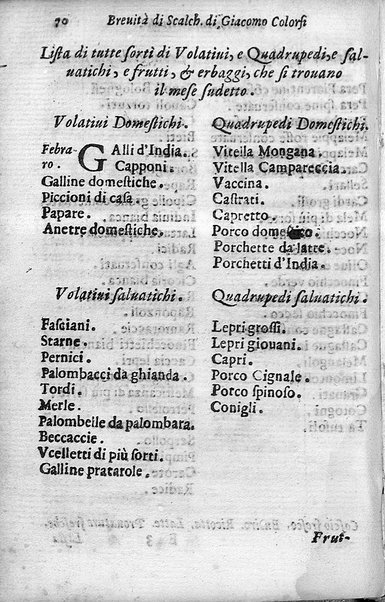 70 Breuità di Scalch. di Giacomo Colorsi
Lista di tutte sorti di Volatiui, e Quadrupedi, e sal-
uatichi, e frutti, & erbaggi, che si trouano
il mese sudetto.
Volatiui Domestichi.
Febra-
ro.
GAlli d'India.
Capponi.
Galline domestiche.
Piccioni di casa.
Papare.
Anetre domestiche.
Quadrupedi Domestichi.
Vitella Mongana.
Vitella Campareccia.
Vaccina.
Castrati.
Capretto.
Porco domestico.
Porchette da latte.
Porchetti d'India.
Volatiui saluatichi.
Fasciani.
Starne.
Pernici.
Palombacci da ghianda.
Tordi.
Merle.
Palombelle da palombara.
Beccaccie.
Vcelletti di più sorti.
Galline pratarole.
Quadrupedi saluatichi.
Lepri grossi.
Lepri giouani.
Capri.
Porco Cignale.
Porco spinoso.
Conigli.
Frut-